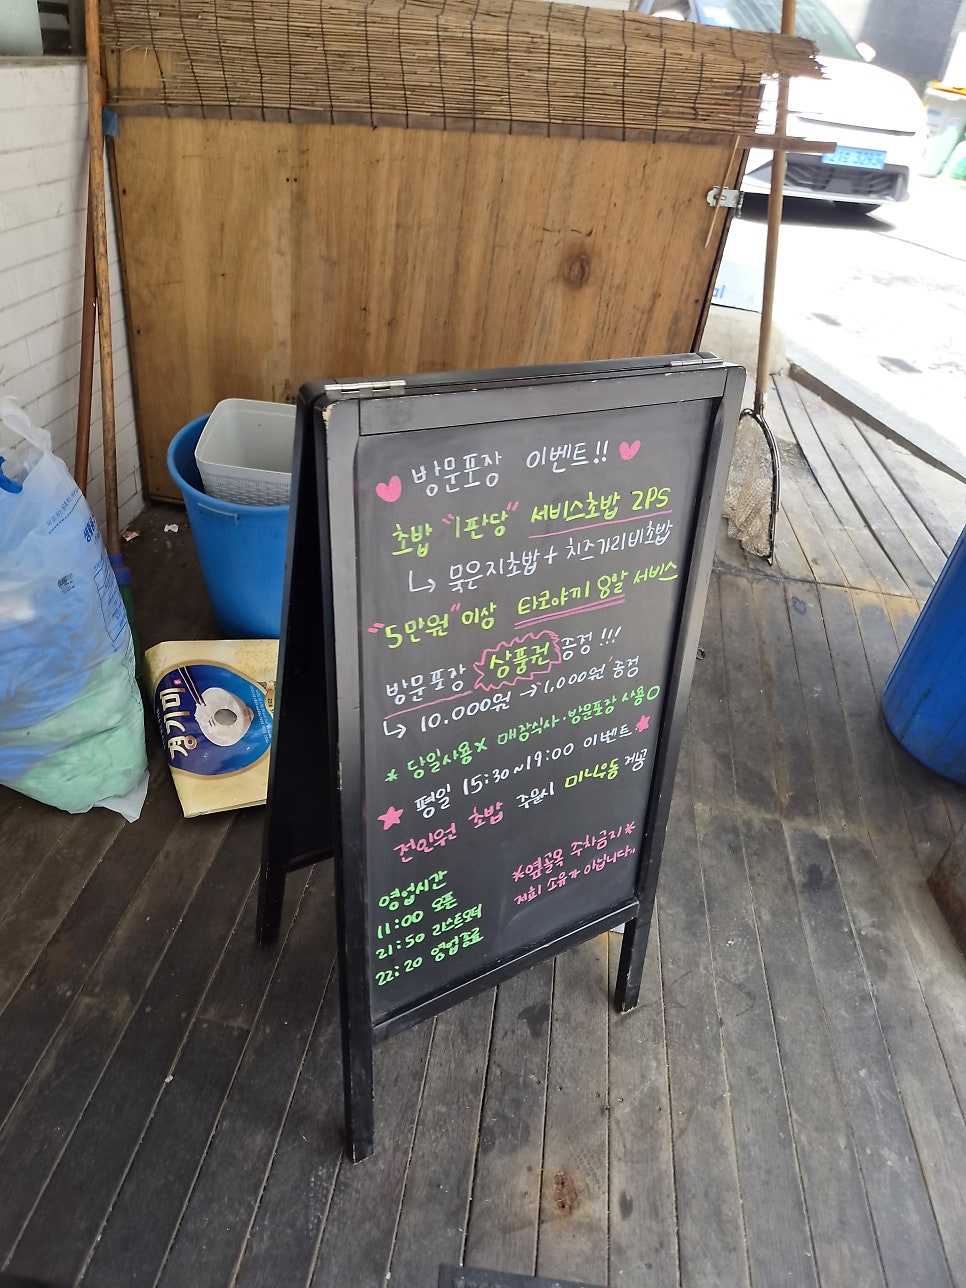 방문포장 이벤트!!
초밥 "1판당" 서비스초밥 2PS
↳ 묵은지초밥 + 치즈가리비초밥
"5만원" 이상 타코야끼 8알 서비스
방문포장 상품권 증정!!!
↳ 10,000원 → 1,000원 증정
* 당일사용X 매장식사·방문포장 사용O
★ 평일 15:30~19:00 이벤트 ★
전인원 초밥 주문시 미니우동 제공
영업시간
11:00 오픈
21:50 라스트오더
22:20 영업종료
*옆골목 주차금지*
저희 소유가 아닙니다"